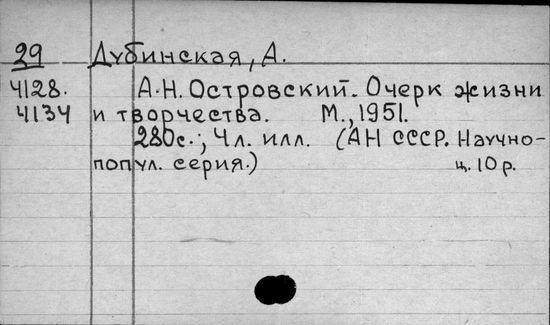 29 Дубинская, А.
4128. А.Н. Островский. Очерк жизни
4134 и творчества. М., 1951.
280с.; 4л. илл. (АН СССР. Научно-
попул. серия.) ц. 10р.